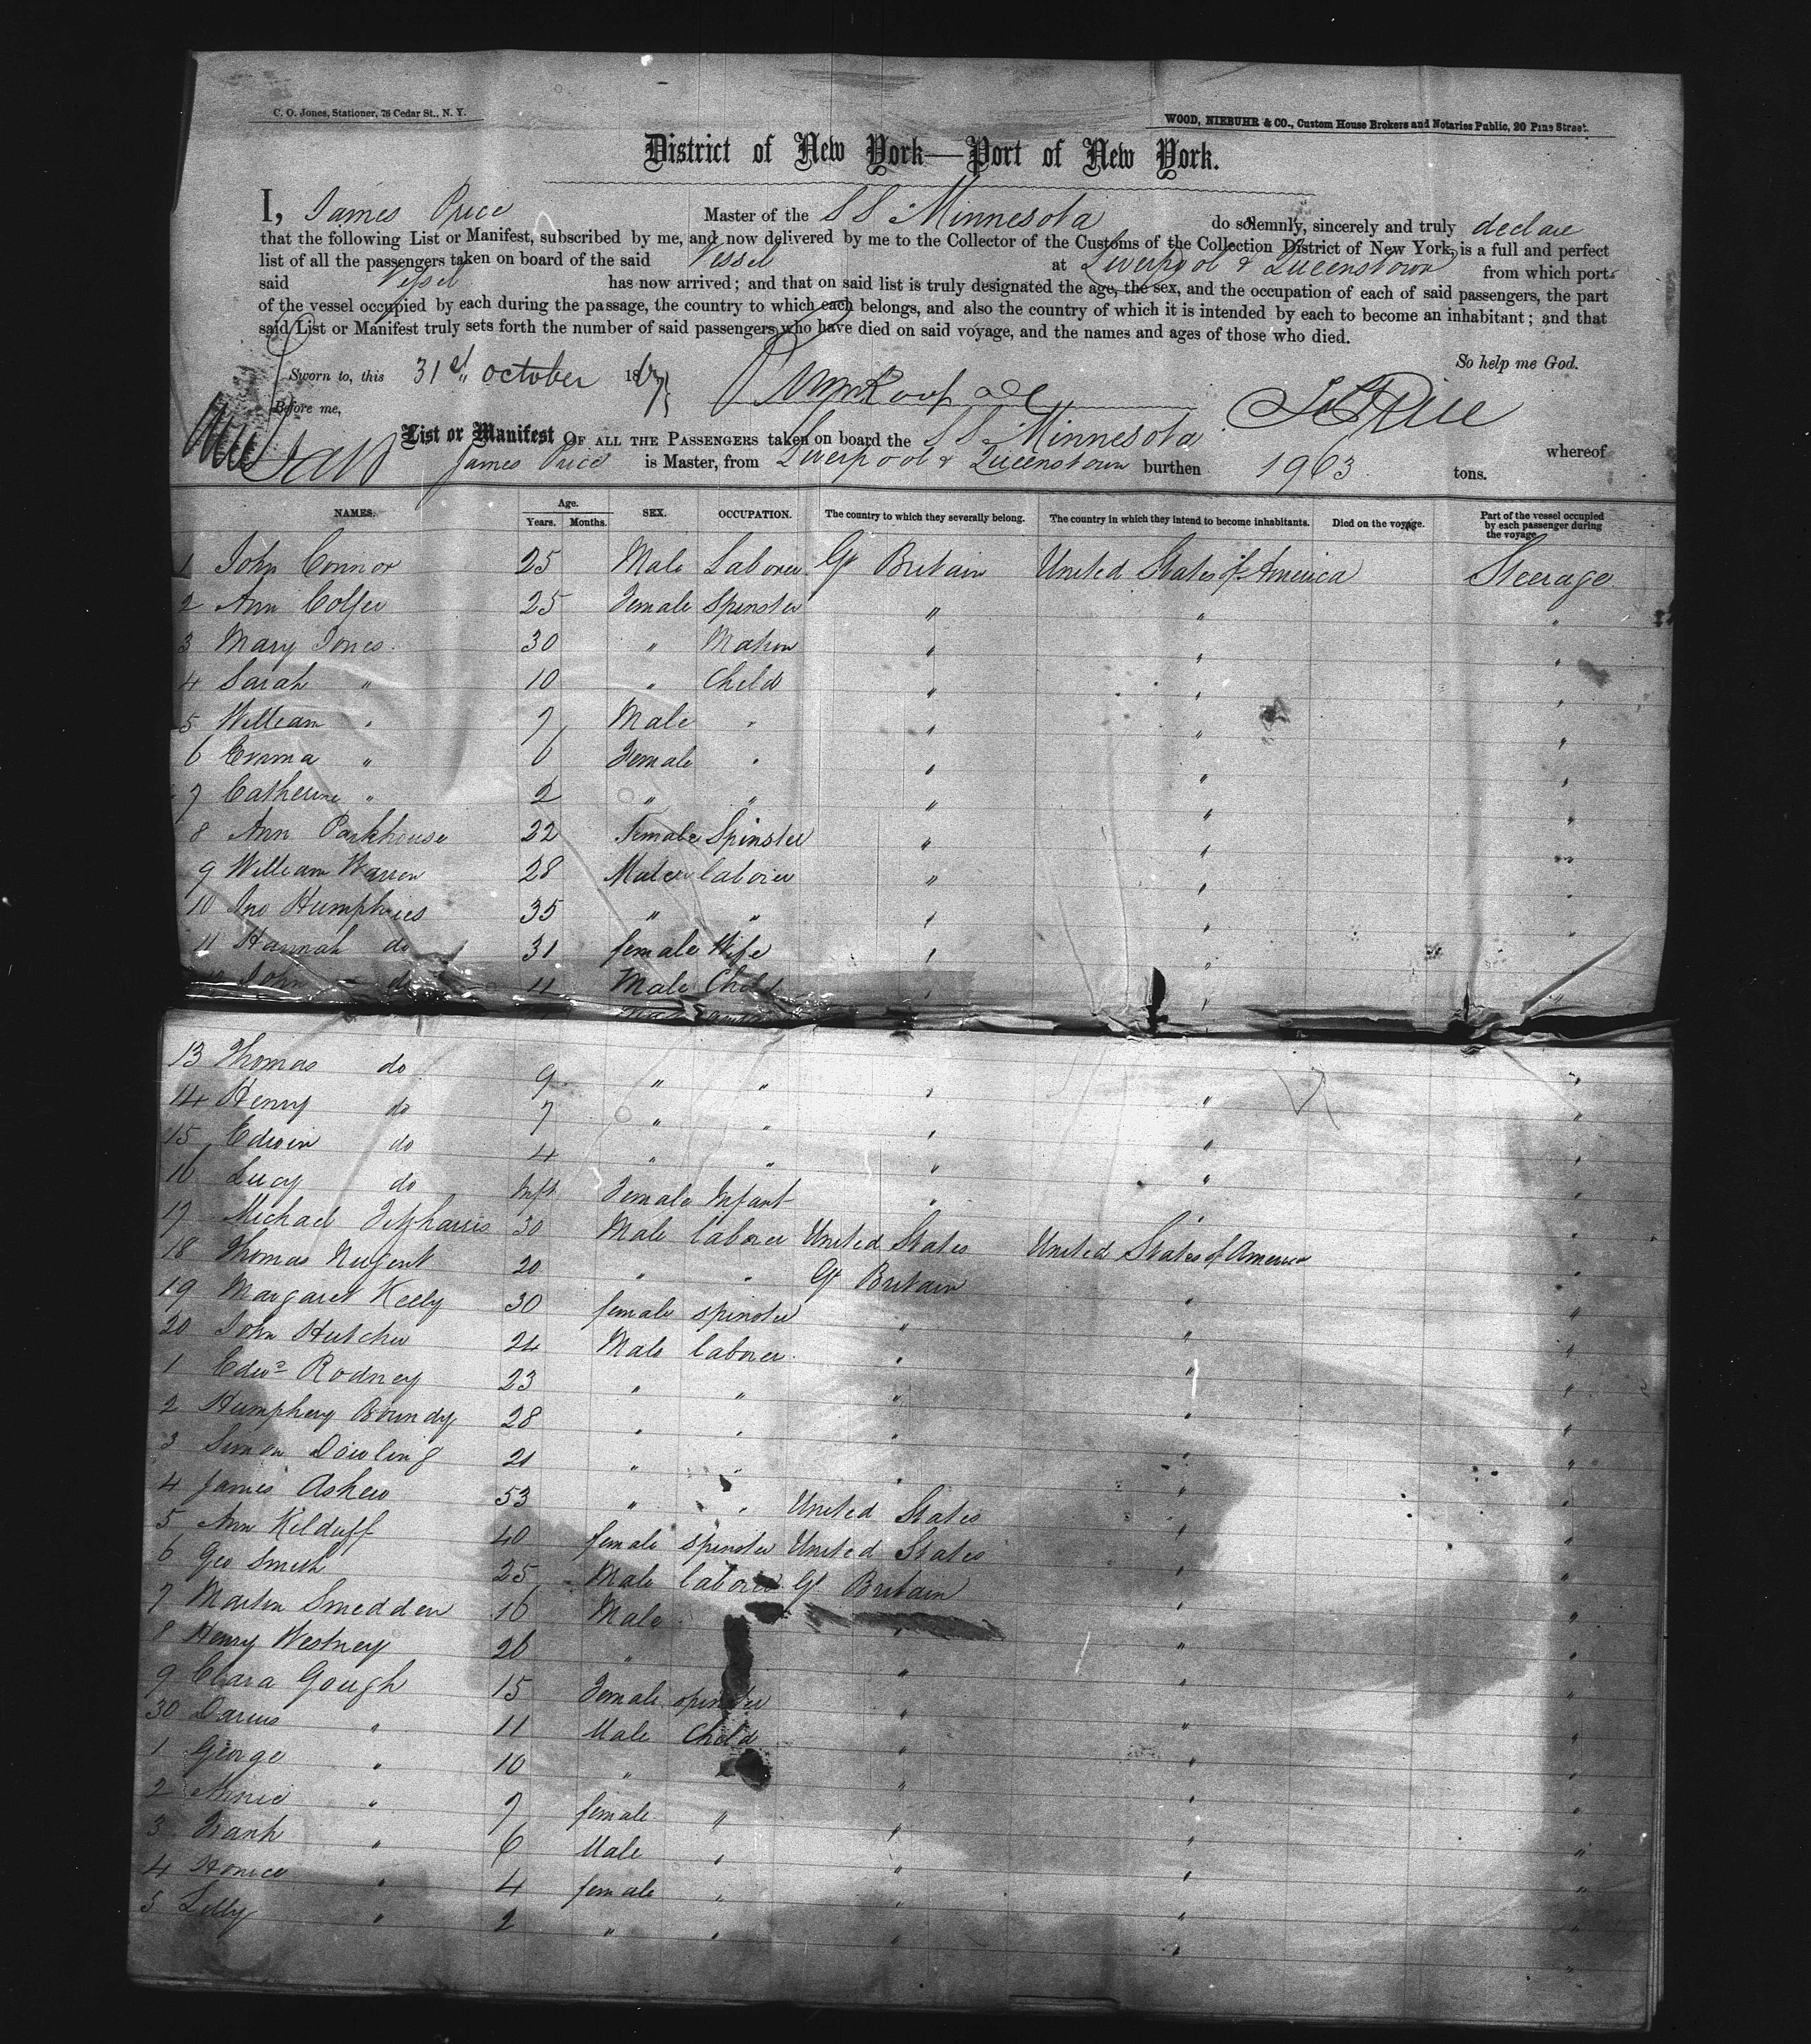 C. O. Jones, Stationer, 76 Cedar St., N. Y.
WOOD, NIEBUHR & CO., Custom House Brokers and Notaries Public, 20 Pine Street.
District of New York—Port of New York.
I, James Price Master of the S S Minnesota do solemnly, sincerely and truly declare
that the following List or Manifest, subscribed by me, and now delivered by me to the Collector of the Customs of the Collection District of New York, is a full and perfect
list of all the passengers taken on board of the said Vessel at Liverpool & Queenstown from which port
said Vessel has now arrived; and that on said list is truly designated the age, the sex, and the occupation of each of said passengers, the part
of the vessel occupied by each during the passage, the country to which each belongs, and also the country of which it is intended by each to become an inhabitant; and that
said List or Manifest truly sets forth the number of said passengers who have died on said voyage, and the names and ages of those who died.
So help me God.
Sworn to, this 31st October 18
Before me,
Jas Price
List or Manifest OF ALL THE PASSENGERS taken on board the S S Minnesota whereof
James Price is Master, from Liverpool & Queenstown burthen 1963 tons.
NAMES. Age. Years. Months. SEX. OCCUPATION. The country to which they severally belong. The country in which they intend to become inhabitants. Died on the voyage. Part of the vessel occupied by each passenger during the voyage.
1 John Connor 25 Male Laborer Gt Britain United States of America Steerage
2 Ann Colfer 25 Female Spinster " " "
3 Mary Jones 30 " Matron " " "
4 Sarah " 10 " Child " " "
5 William " 7 Male " " " "
6 Emma " 6 Female " " " "
7 Catherine " 2 " " " " "
8 Ann Parkhouse 22 Female Spinster " " "
9 William Warren 28 Male laborer " " "
10 Jno Humphries 35 " " " " "
11 Hannah do 31 female Wife " " "
12 John do 11 Male Child " " "
13 Thomas do 9 " " " " "
14 Henry do 7 " " " " "
15 Edwin do 4 " " " " "
16 Lucy do Inft Female Infant " " "
17 Michael Fitzharris 30 Male laborer United States United States of America "
18 Thomas Nugent 20 " " Gt Britain " "
19 Margaret Kelly 30 female spinster " " "
20 John Hutcher 24 Male laborer " " "
1 Edwd Rodney 23 " " " " "
2 Humphery Boundy 28 " " " " "
3 Simon Dowling 21 " " " " "
4 James Askew 53 " " United States " "
5 Ann Kilduff 40 female spinster United States " "
6 Geo Smith 25 Male laborer Gt Britain " "
7 Martin Smedden 16 Male " " "
8 Henry Westney 26 " " " "
9 Clara Gough 15 Female spinster " " "
30 Darius " 11 Male Child " " "
1 George " 10 " " " "
2 Annie " 7 female " " " "
3 Frank " 6 Male " " " "
4 " 4 female " " " "
5 Lilly " 2 " " " " "